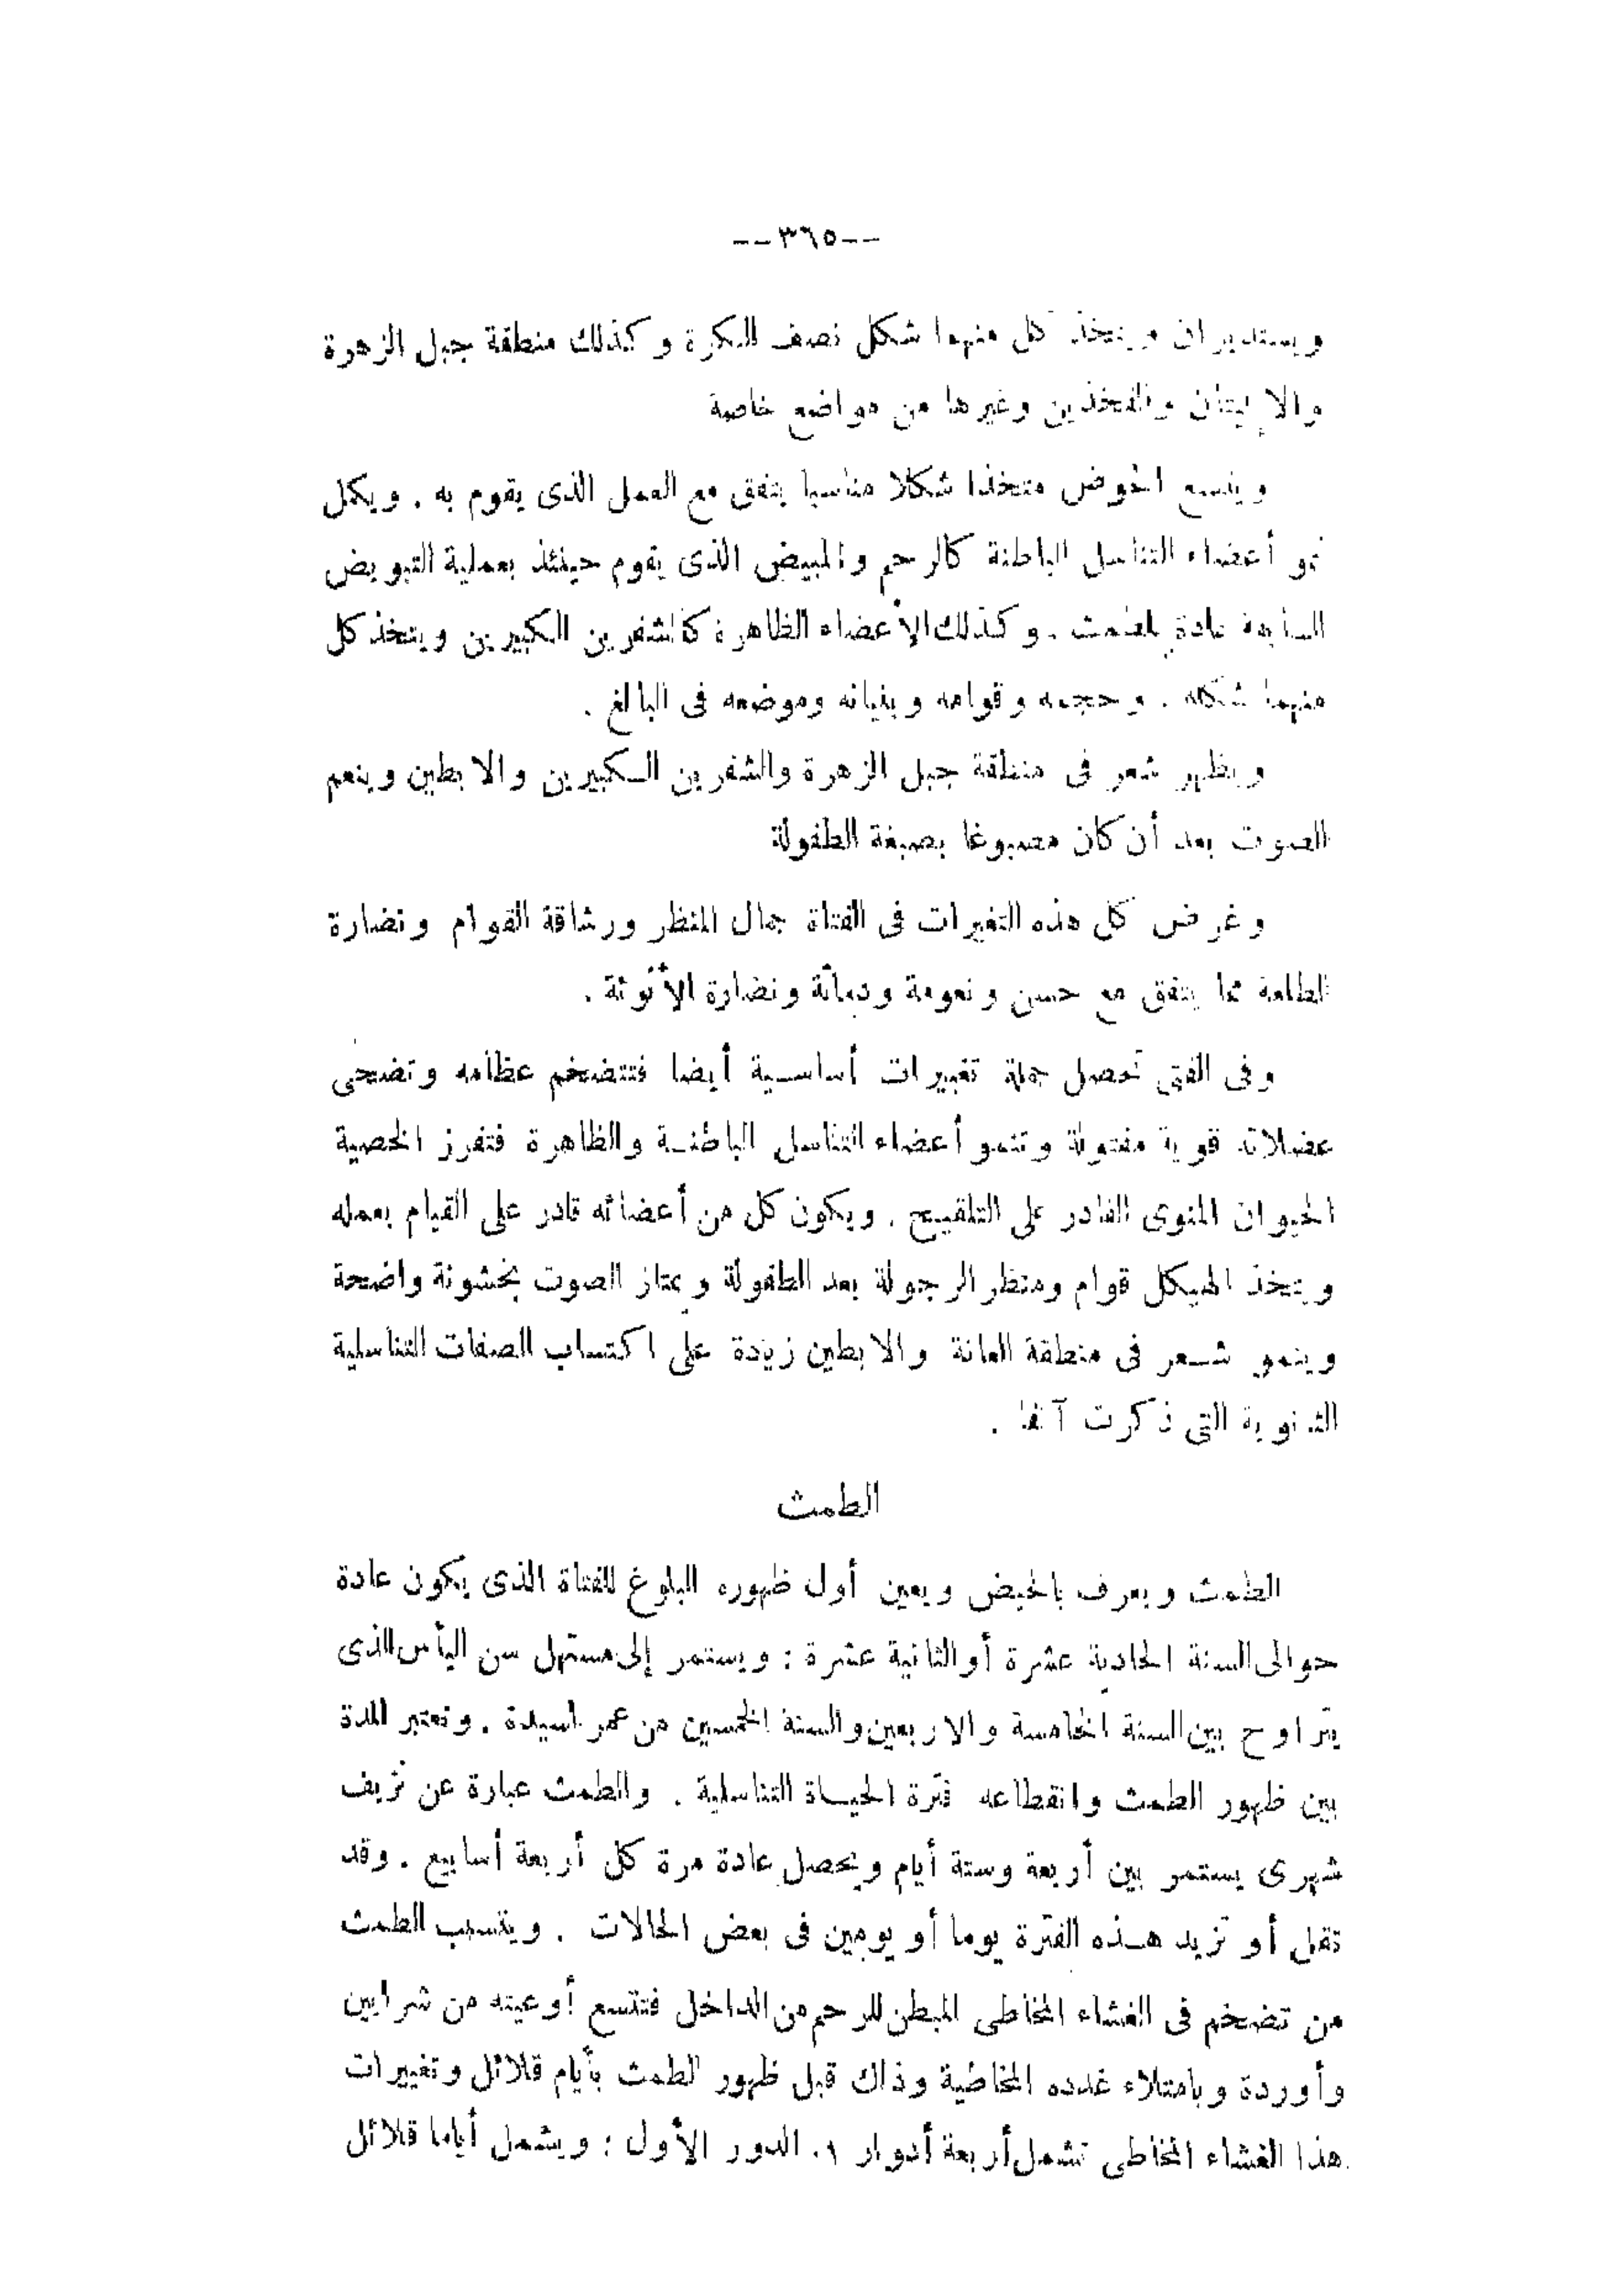 --٣٦٥--
ويستديران ويتخذ كل منهما شكل نصف الكرة وكذلك منطقة جبل الزهرة
والإليتان والفخذين وغيرها من مواضع خاصة
ويتسع الحوض متخذا شكلا مناسبا يتفق مع العمل الذى يقوم به . ويكمل
نمو أعضاء التناسل الباطنة كالرحم والمبيض الذى يقوم حينئذ بعملية التبويض
عادة للطمث . وكذلك الأعضاء الظاهرة كالشفرين الكبيرين ويتخذ كل
منهما شكله . وحجمه وقوامه وبنيانه وموضعه فى البالغ .
ويظهر شعر فى منطقة جبل الزهرة والشفرين الكبيرين والابطين وينعم
الصوت بعد أن كان مصبوغا بصبغة الطفولة
وغرض كل هذه التغيرات فى الفتاة جمال المنظر ورشاقة القوام ونضارة
الطلعة مما يتفق مع حسن ونعومة ودماثة ونضارة الأنوثة .
وفى الفتى تحصل جملة تغييرات أساسية أيضا فتتضخم عظامه وتضحى
عضلاته قوية مفتولة وتنمو أعضاء التناسل الباطنة والظاهرة فتفرز الخصية
الحيوان المنوى القادر على التلقيح . ويكون كل من أعضائه قادر على القيام بعمله
ويتخذ الهيكل قوام ومنظر الرجولة بعد الطفولة ويمتاز الصوت بخشونة واضحة
وينمو شعر فى منطقة العانة والابطين زيادة على اكتساب الصفات التناسلية
الثانوية التى ذكرت آنفا .
الطمث
الطمث ويعرف بالحيض ويعين أول ظهوره البلوغ للفتاة الذى يكون عادة
حوالى السنة الحادية عشرة أو الثانية عشرة : ويستمر إلى مستهل سن اليأس الذى
يتراوح بين السنة الخامسة والاربعين والسنة الخمسين من عمر السيدة . وتعتبر المدة
بين ظهور الطمث وانقطاعه فترة الحياة التناسلية . والطمث عبارة عن نزيف
شهرى يستمر بين أربعة وستة أيام ويحصل عادة مرة كل أربعة أسابيع . وقد
تقل أو تزيد هذه الفترة يوما أو يومين فى بعض الحالات . ويتسبب الطمث
من تضخم فى الغشاء المخاطى المبطن للرحم من الداخل فتتسع أوعيته من شرايين
وأوردة وبامتلاء غدده المخاطية وذاك قبل ظهور الطمث بأيام قلائل وتغييرات
هذا الغشاء المخاطى تشمل أربعة أدوار ١. الدور الأول : ويشمل أياما قلائل